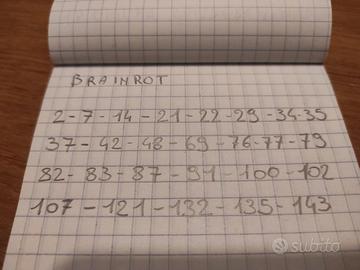 BRAINROT
2-7-14-21-22-29-34-35
37-42-48-69-76-77-79
82-83-87-91-100-102
107-121-132-135-143
subito